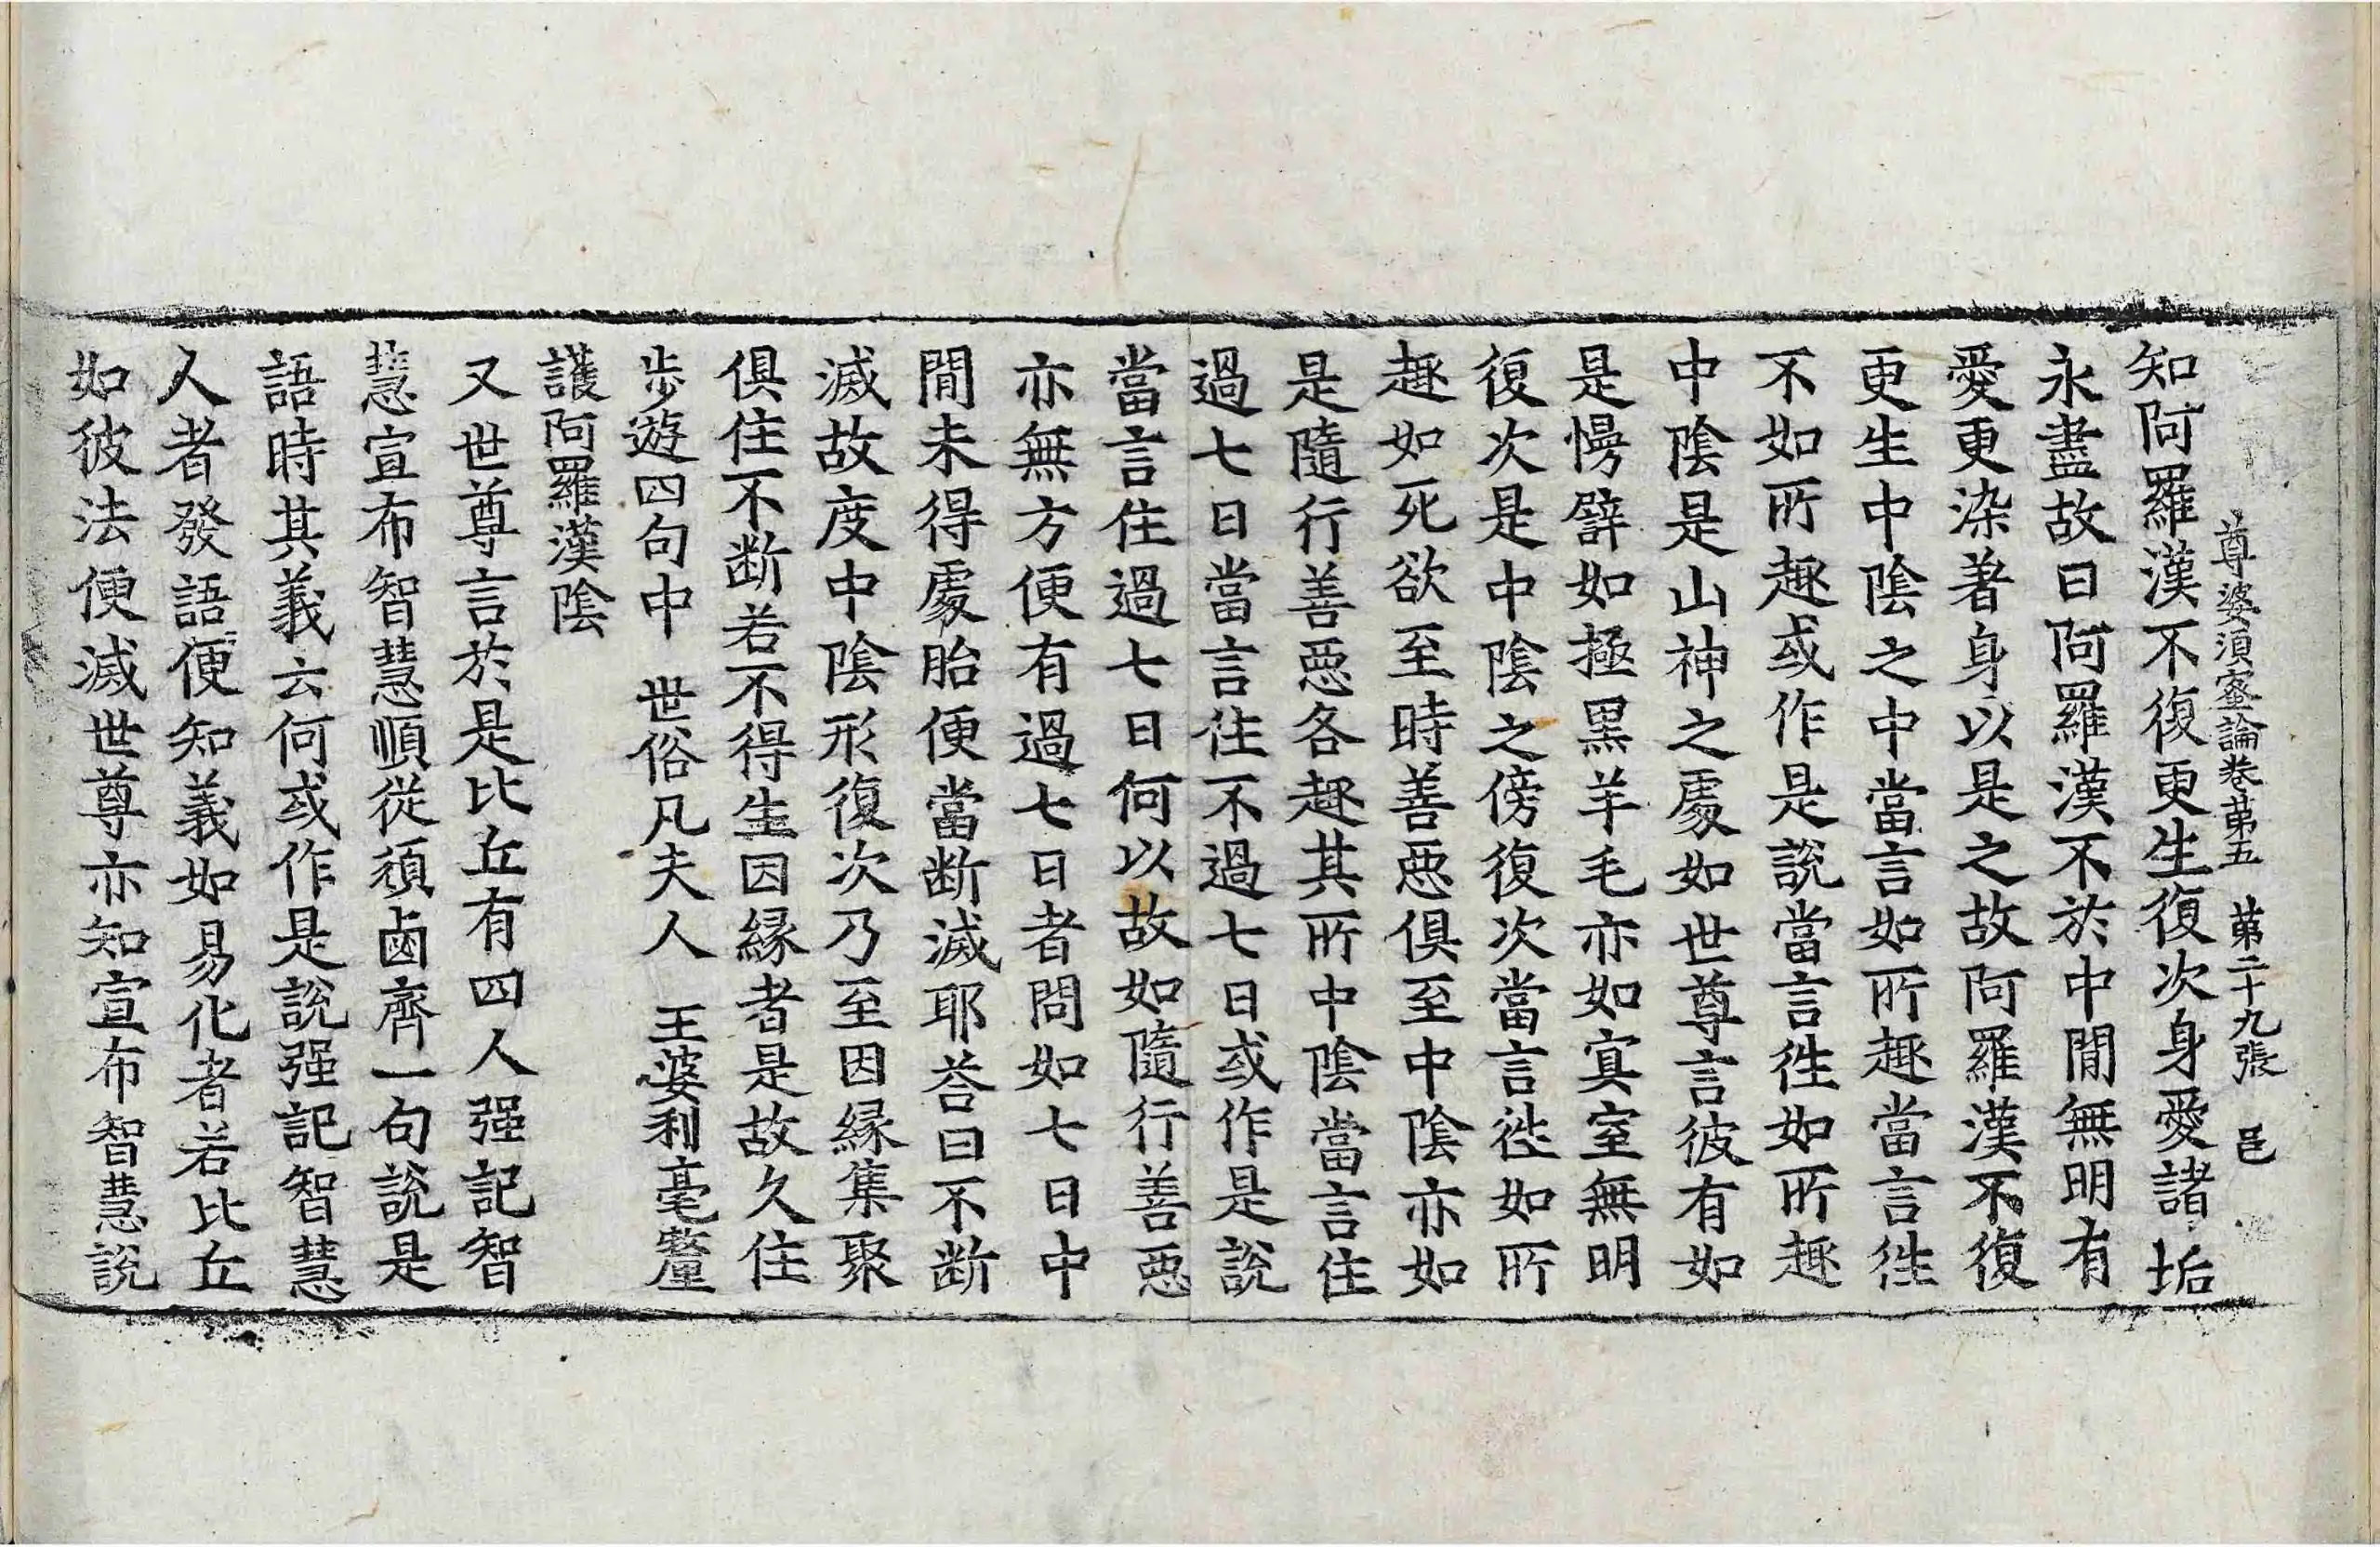 尊婆須蜜論卷苐五　苐二十九張　邑
知阿羅漢不復更生復次身愛諸垢
永盡故曰阿羅漢不於中閒無明有
愛更染著身以是之故阿羅漢不復
更生中陰之中當言如所趣當言徃
不如所趣或作是說當言徃如所趣
中陰是山神之處如世尊言彼有如
是慢譬如極黒羊毛亦如寘室無明
復次是中陰之傍復次當言徃如所
趣如死欲至時善惡俱至中陰亦如
是隨行善惡各趣其所中陰當言住
過七日當言住不過七日或作是說
當言住過七日何以故如隨行善惡
亦無方便有過七日者問如七日中
閒未得處胎便當断滅耶荅曰不断
滅故度中陰形復次乃至因緣集聚
俱住不断若不得生因緣者是故久住
步遊四句中　世俗凡夫人　王婆利毫釐
護阿羅漢陰
又世尊言於是比丘有四人强記智
慧宣布智慧順從湏鹵齊一句說是
語時其義云何或作是說强記智慧
人者發語便知義如易化者若比丘
如彼法便滅世尊亦知宣布智慧說